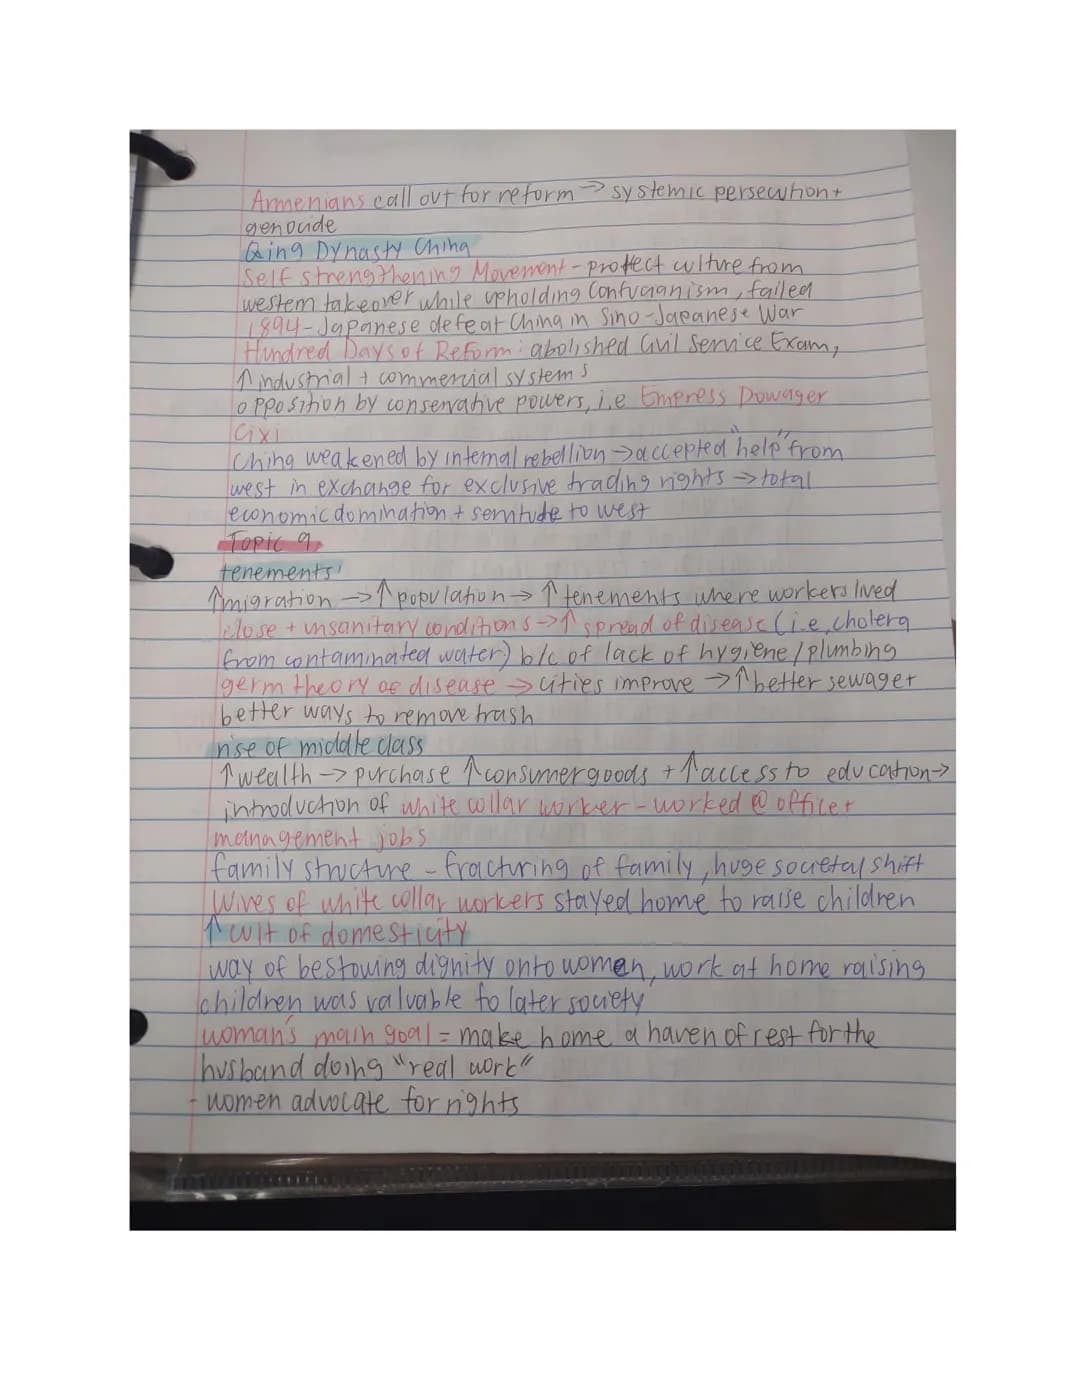 Armenians call out for reform → systemic persecution +
genocide
Qing Dynasty China
Self strengthening Movement - protect culture from
western takeover while upholding Confucianism, failed
1894 - Japanese defeat China in Sino-Japanese War
Hundred Days of Reform: abolished Civil Service Exam,
↑ industrial + commercial systems
opposition by conservative powers, i.e Empress Dowager
Cixi
China weakened by internal rebellion → accepted "help" from
west in exchange for exclusive trading rights → total
economic domination + servitude to west
Topic 9
tenements:
↑migration → ↑population → ↑tenements where workers lived
close + unsanitary conditions → ↑ spread of disease (i.e, cholera
from contaminated water) b/c of lack of hygiene/plumbing
germ theory of disease → cities improve → ↑ better sewage +
better ways to remove trash
rise of middle class
↑wealth → purchase ↑consumer goods + ↑access to education →
introduction of white collar worker - worked @ office +
management jobs
family structure - fracturing of family, huge societal shift
Wives of white collar workers stayed home to raise children
↑ cult of domesticity
way of bestowing dignity onto women, work at home raising
children was valuable to later society
woman's main goal = make home a haven of rest for the
husband doing "real work"
- women advocate for rights